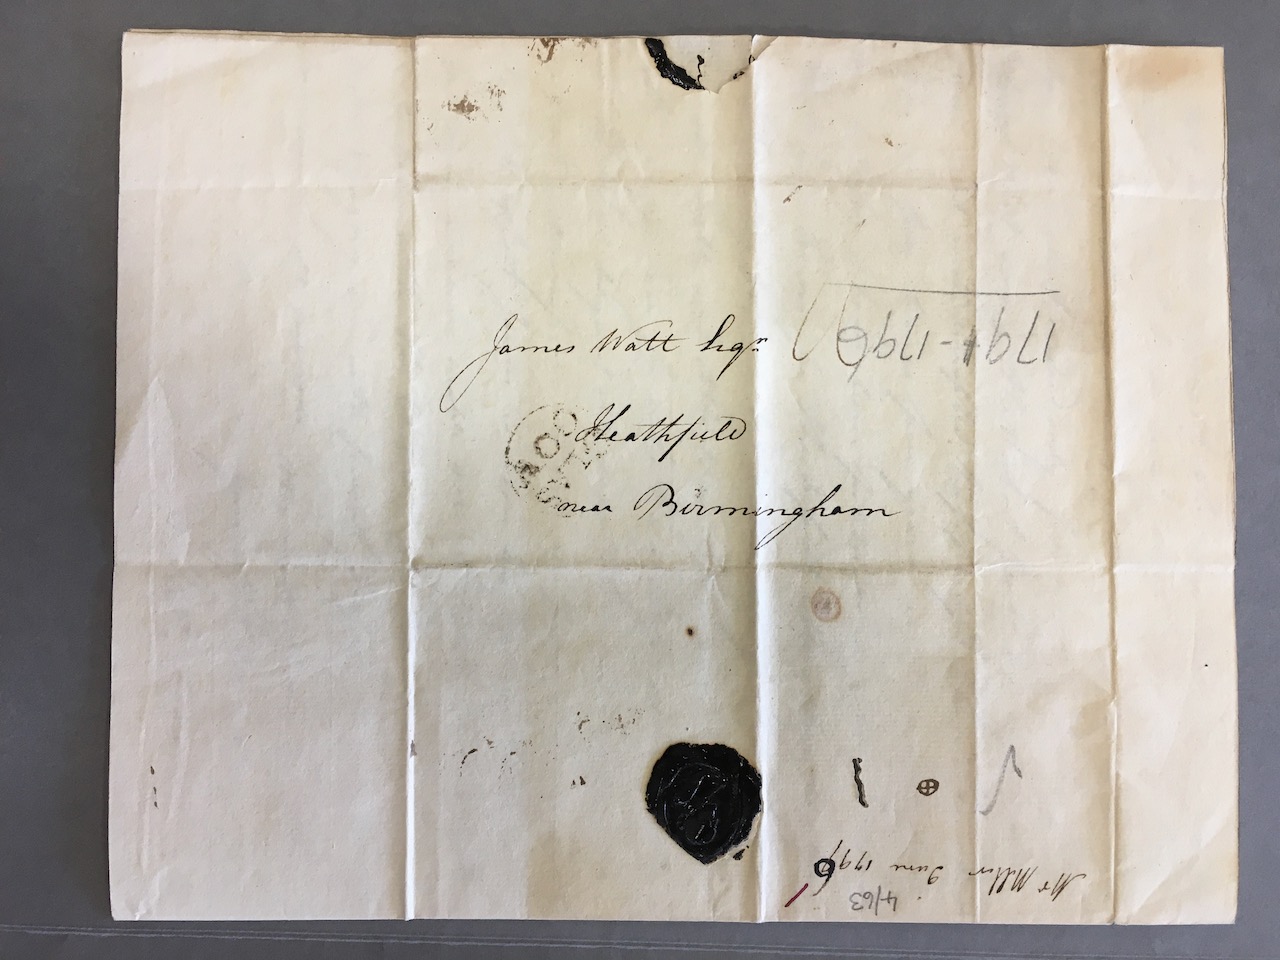 James Watt Esqr
Heathfield
near Birmingham
1794-1796
4/63
Mr Miller June 1796